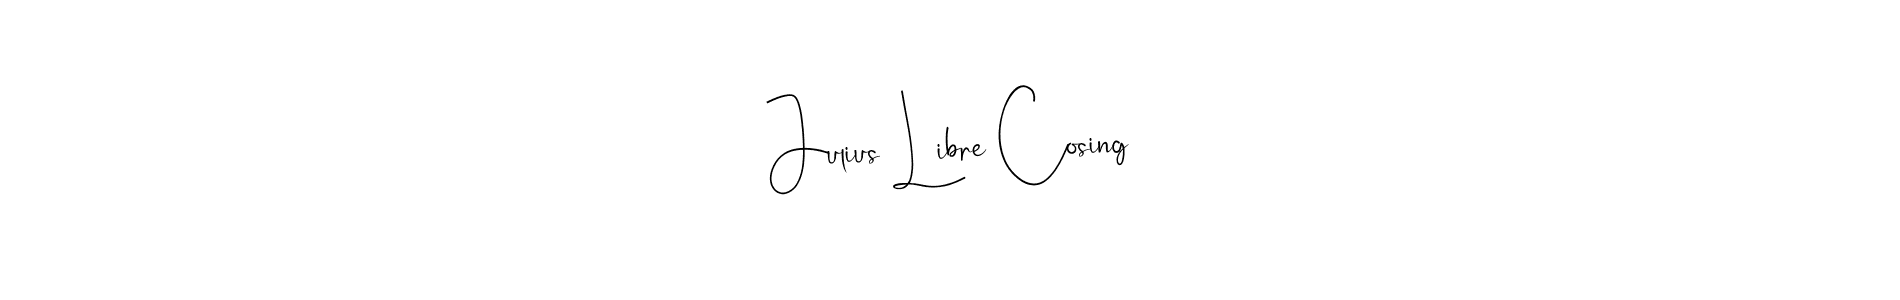 Julius Libre Cosing